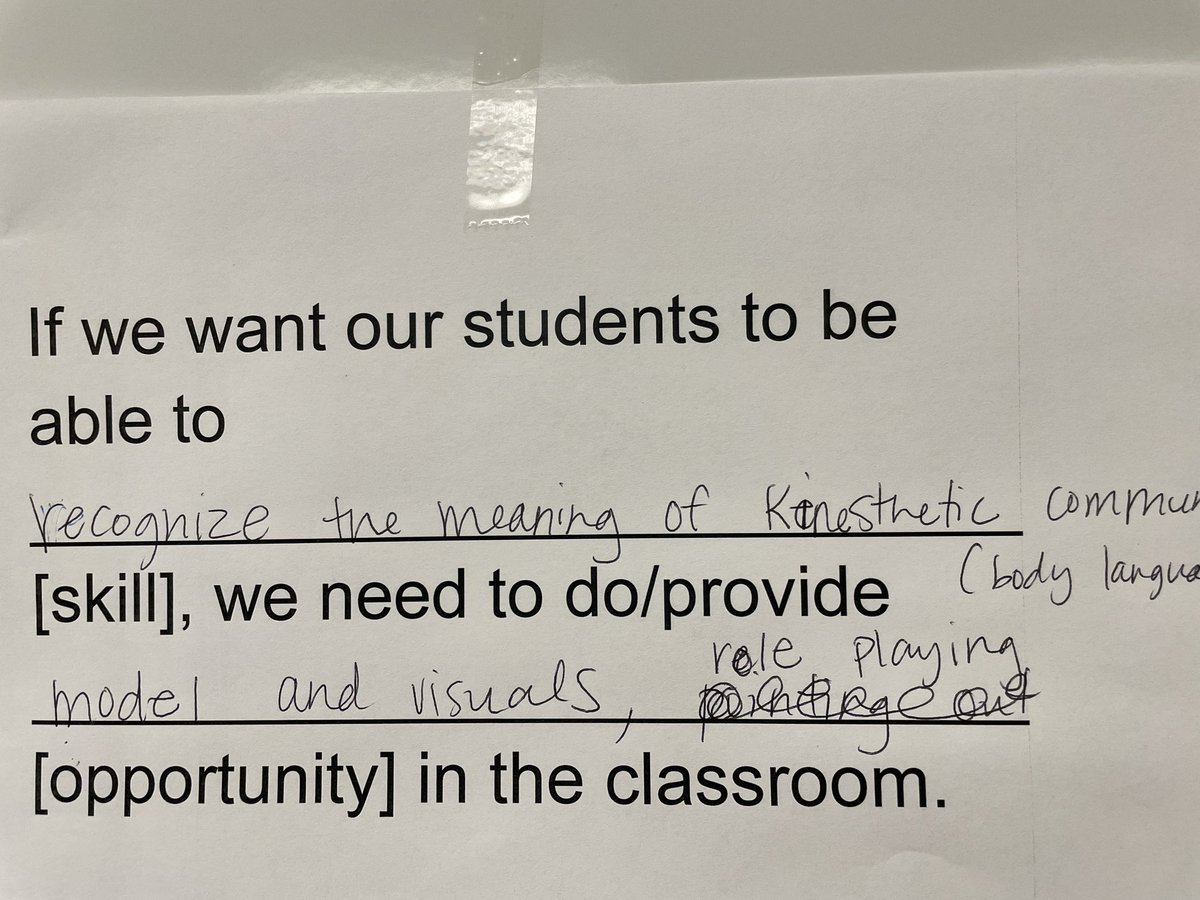 If we want our students to be
able to
recognize the meaning of Kinesthetic commun
[skill], we need to do/provide (body langua
role playing
model and visuals,
[opportunity] in the classroom.